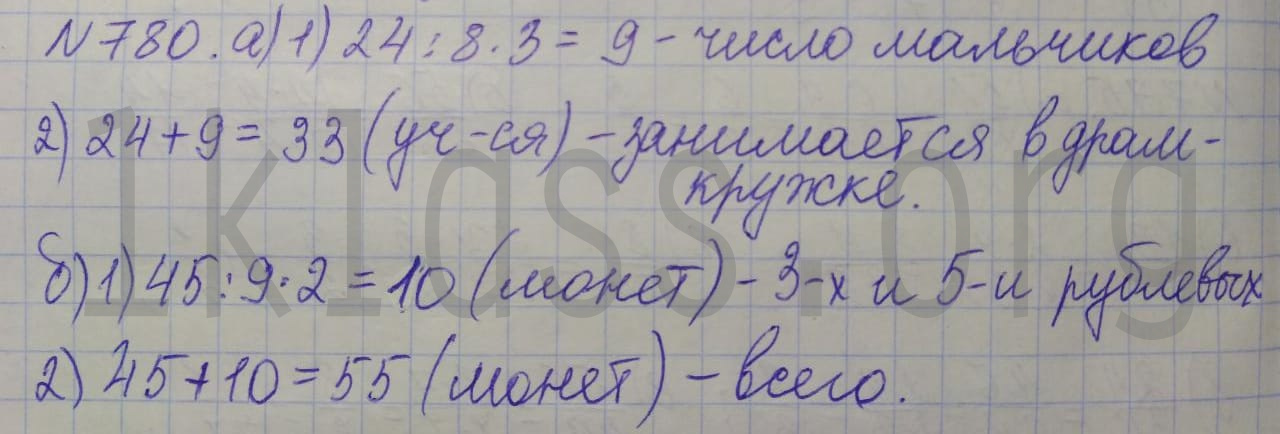 N780. а) 1) 24 : 8 · 3 = 9 - число мальчиков
2) 24 + 9 = 33 (уч-ся) - занимается в драм-
кружке.
б) 1) 45 : 9 · 2 = 10 (монет) - 3-х и 5-и рублевых
2) 45 + 10 = 55 (монет) - всего.
1klass.org